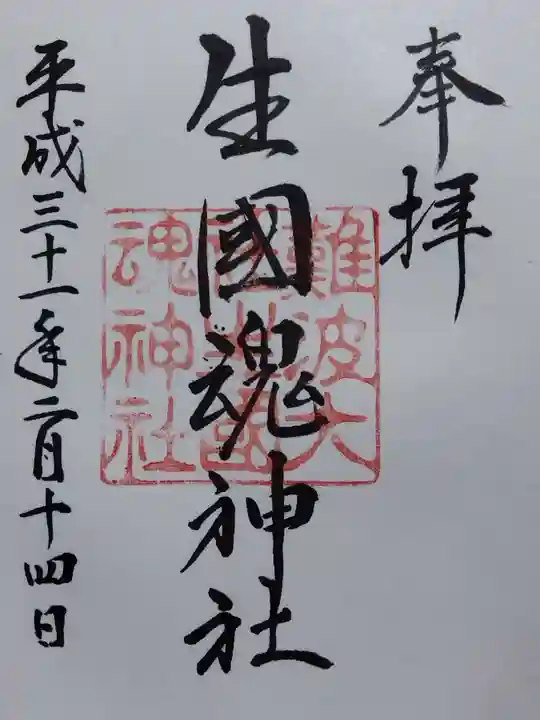 奉拝
生國魂神社
平成三十一年二月十四日
難波大
魂神社